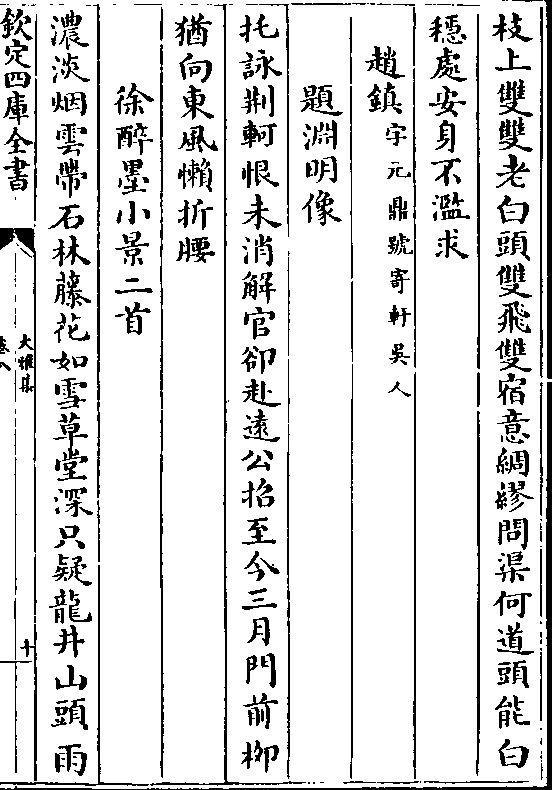 枝上雙雙老白頭雙飛雙宿意綢繆問渠何道頭能白
穩處安身不濫求
趙鎮字元鼎號寄軒吳人
題淵明像
托詠荆軻恨未消解官卻赴遠公招至今三月門前栁
猶向東風懶折腰
徐醉墨小景二首
濃淡烟雲帶石林藤花如雪草堂深只疑龍井山頭雨
欽定四庫全書
大雅集
卷八
十